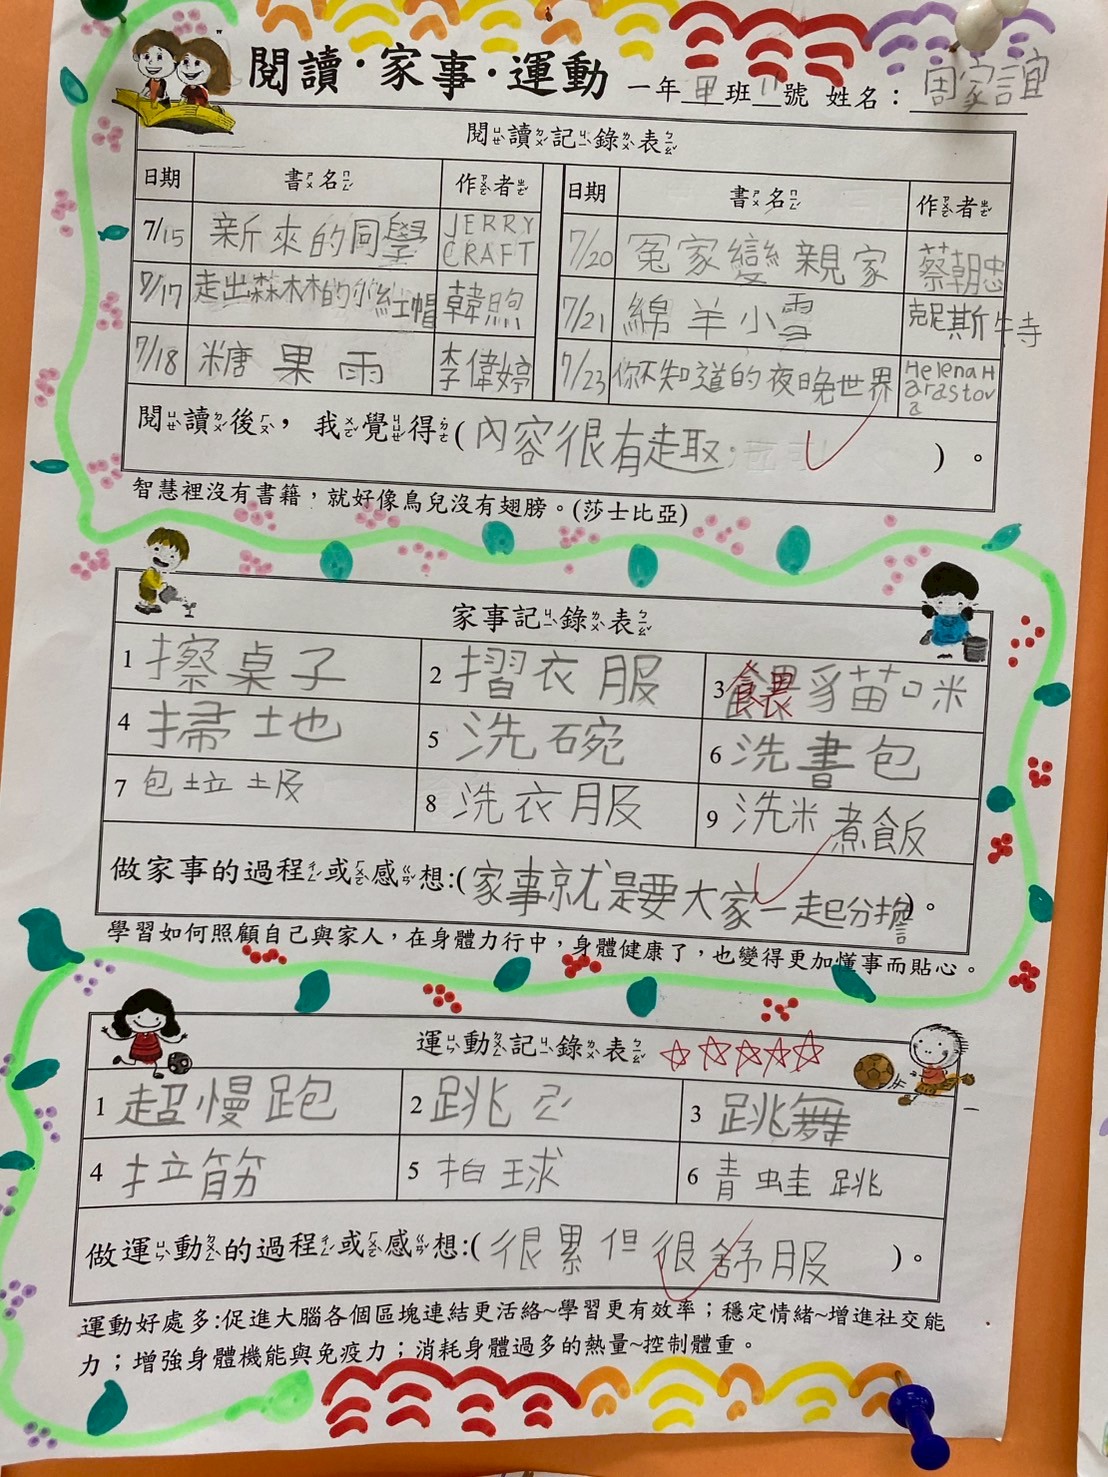 閱讀·家事·運動 一年甲班11號 姓名：周家誼
閱讀記錄表
日期 書名 作者 日期 書名 作者
7/15 新來的同學 JERRY CRAFT 7/20 冤家變親家 蔡朝忠
7/17 走出森林的小紅帽 韓煦 7/21 綿羊小雪 克尼斯牛寺
7/18 糖果雨 李偉婷 7/23 你不知道的夜晚世界 Helena Harastova
閱讀後，我覺得(內容很有走取。)。
智慧裡沒有書籍，就好像鳥兒沒有翅膀。(莎士比亞)
家事記錄表
1 擦桌子 2 摺衣服 3 餵豸苗口米
4 掃地 5 洗碗 6 洗書包
7 包垃圾 8 洗衣服 9 洗米煮飯
做家事的過程或感想:(家事就是要大家一起分擔)。
學習如何照顧自己與家人，在身體力行中，身體健康了，也變得更加懂事而貼心。
運動記錄表
1 超慢跑 2 跳 3 跳舞
4 拉筋 5 拍球 6 青蛙跳
做運動的過程或感想:(很累但很舒服)。
運動好處多:促進大腦各個區塊連結更活絡~學習更有效率；穩定情緒~增進社交能
力；增強身體機能與免疫力；消耗身體過多的熱量~控制體重。